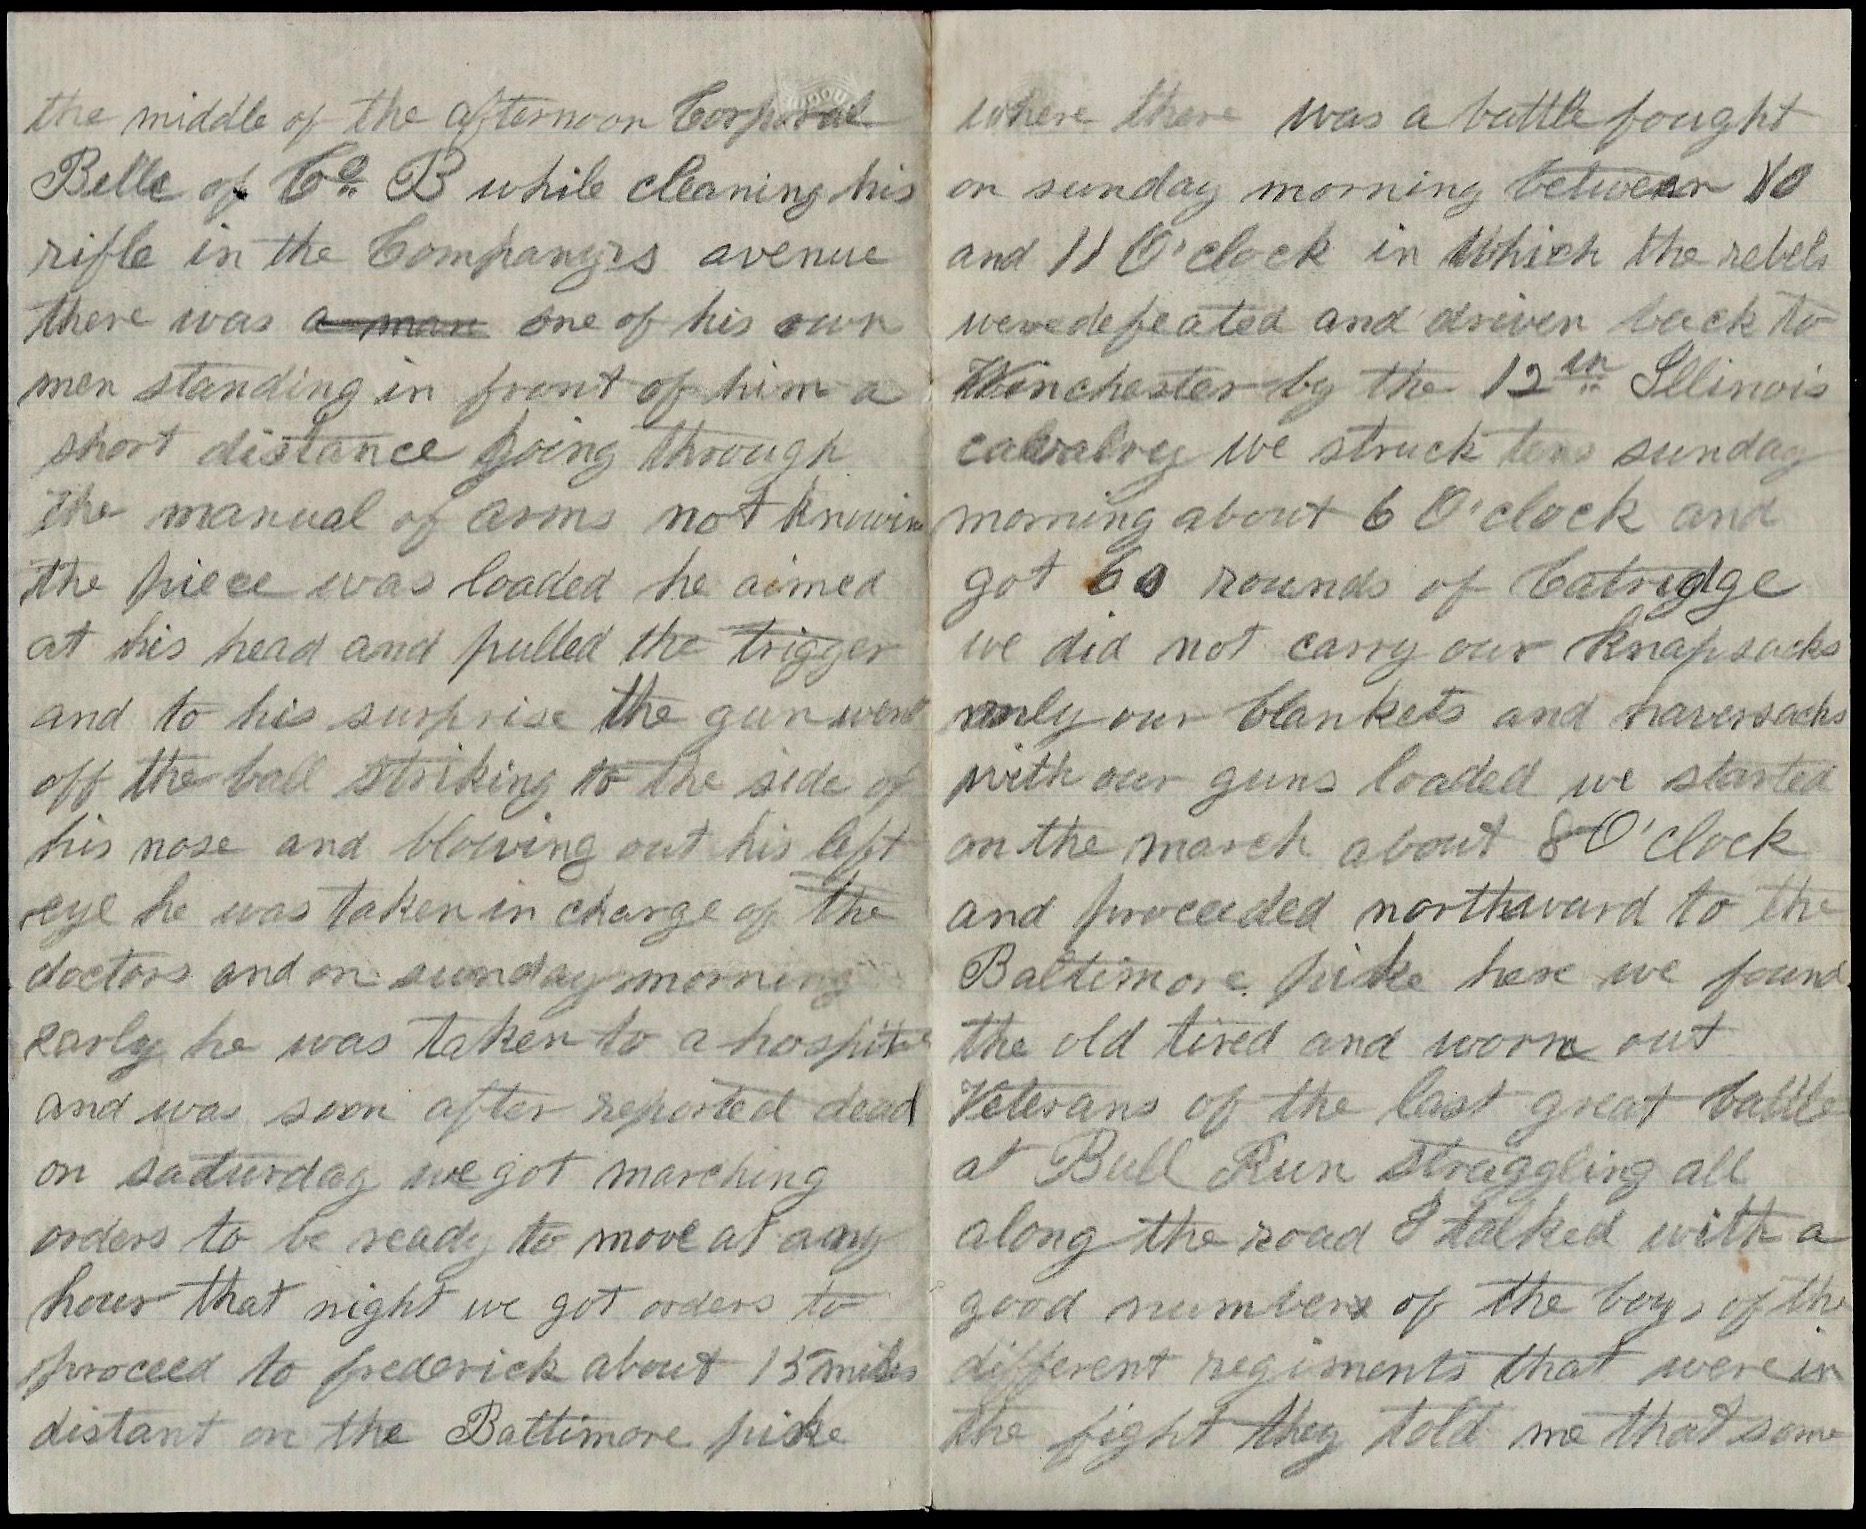 the middle of the afternoon Corporal
Belle of Co. B while cleaning his
rifle in the Companyes avenue
there was a man one of his own
men standing in front of him a
short distance going through
the manual of arms not knowin
the piece was loaded he aimed
at his head and pulled the trigger
and to his surprise the gun went
off the ball striking to the side of
his nose and blowing out his left
eye he was taken in charge of the
doctors and on sunday morning
early he was taken to a hospital
and was soon after reported dead
on saturday we got marching
orders to be ready to move at any
hour that night we got orders to
proceed to frederick about 15 miles
distant on the Baltimore pike
where there was a battle fought
on sunday morning between 10
and 11 O'clock in which the rebels
were defeated and driven back to
Winchester by the 12th Illinois
calvalrey we struck tens sunday
morning about 6 O'clock and
got 60 rounds of Catridge
we did not carry our knapsacks
only our blankets and haversacks
with our guns loaded we started
on the march about 8 O'clock
and proceeded northward to the
Baltimore pike here we found
the old tired and worn out
Veterans of the last great battle
at Bull Run straggling all
along the road I talked with a
good number of the boys of the
different regiments that were in
the fight they told me that some